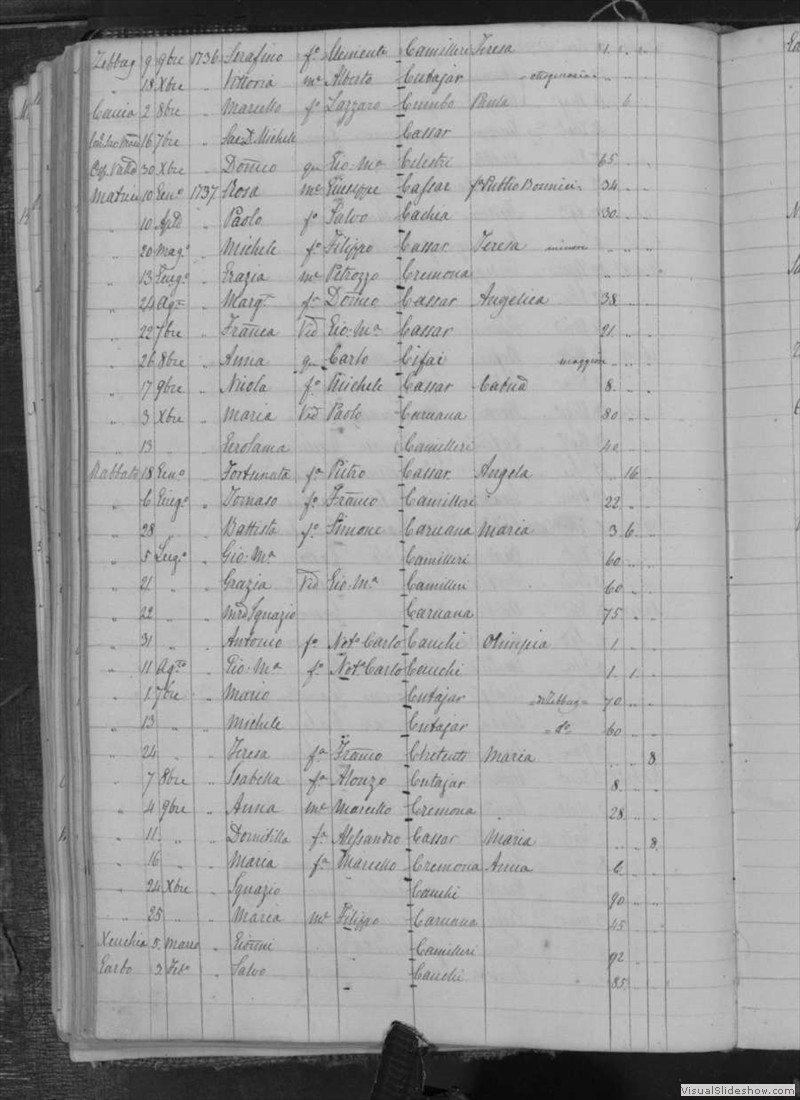 Zebbug 9 9bre 1736 Serafino fo Clemente Camilleri Teresa 1 . .
" 18 Xbre " Vittoria me Alberto Cutajar " " "
Gaura 2 8bre " Marcello fo Lazzaro Cumbo Paula " 6 "
16 7bre " Sac. D. Michele Cassar
30 Xbre " Domco qm Gio: Ma Celestri 65 " "
Matrice 10 Geno 1737 Rosa me Giuseppe Cassar fa Publio Bonnici 34 " "
" 10 Aple " Paolo fo Salvo Cachia 30 " "
" 20 Mago " Michele fo Filippo Cassar Teresa minore " " "
" 13 Giugo " Grazia me Petrozzo Cremona " " "
" 24 Ago " Margta fa Domco Cassar Angelica 38 " "
" 22 7bre " Franca Vid Gio: Ma Cassar 21 " "
" 26 8bre " Anna qm Carlo Cifai maggiore " " "
" 17 9bre " Nicola fo Michele Cassar Catna 8 " "
" 3 Xbre " Maria Vid Paolo Caruana 80 " "
" 13 " Gerolama Camilleri 40 " "
Rabbato 18 Geno " Fortunata fa Pietro Cassar Angela " 16 "
" 6 Giugo " Tomaso fo Franco Camilleri 22 " "
" 28 " Battista fo Simone Caruana Maria 3 6 "
" 5 Lugo " Gio: Ma Camilleri 60 " "
" 21 " Grazia Vid Gio: Ma Camilleri 60 " "
" 22 " Ignazio Caruana 75 " "
" 31 " Antonio fo Noto Carlo Cauchi Olimpia 1 " "
" 11 Agto " Gio: Ma fo Noto Carlo Cauchi 1 1 "
" 1 7bre " Mario Cutajar =di Zebbug= 70 " "
" 13 " Michele Cutajar = do = 60 " "
" 24 " Teresa fa Franco Chetcuti Maria " " 8
" 7 8bre " Isabella fa Alonzo Cutajar 8 " "
" 4 9bre " Anna me Marcello Cremona 28 " "
" 11 " " Domitilla fa Alessandro Cassar Maria " " 8
" 16 " " Maria fa Marcello Cremona Anna 6 " "
" 24 Xbre " Ignazio Cauchi 90 " "
" 25 " " Maria me Filippo Caruana 45 " "
Xeuchia 5 Marzo " Gionni Camilleri 92 " "
Garbo 2 Febo " Salvo Cauchi 85 " "
VisualSlideshow.com